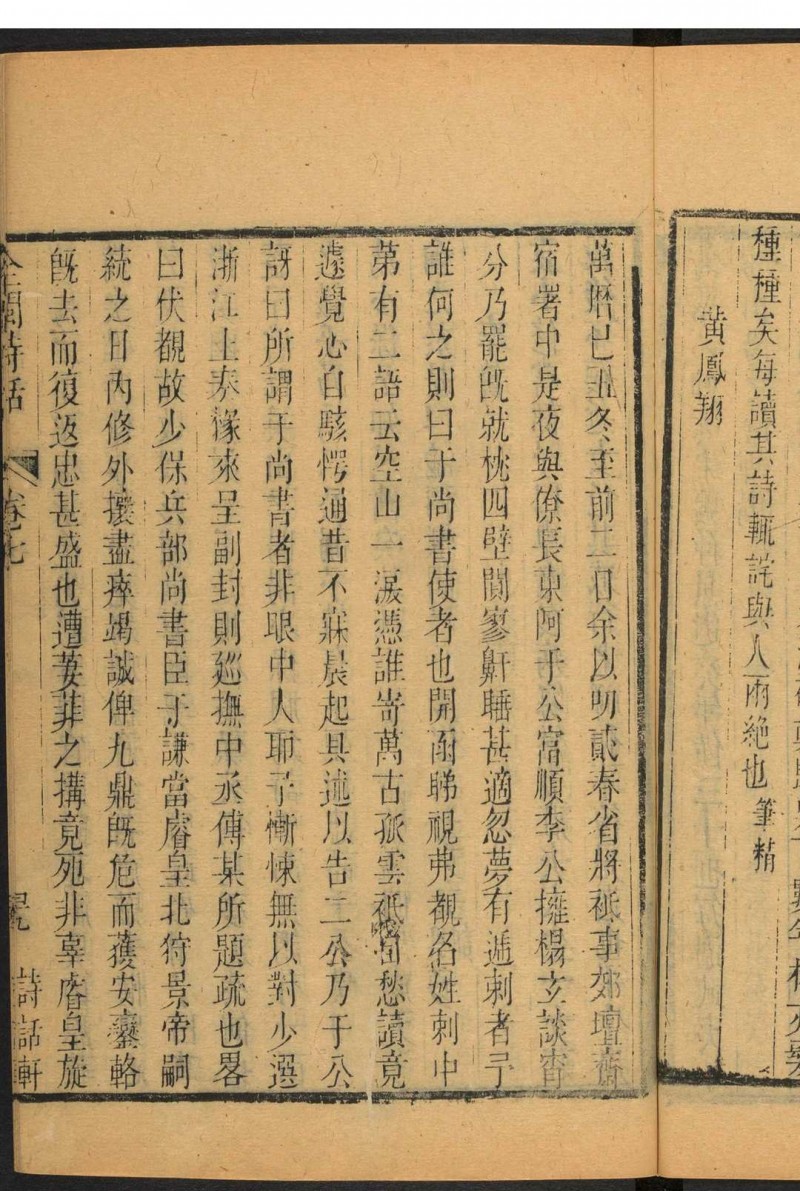 種種矣每讀其詩輒詫與人兩絶也筆精
黃鳳翔
萬曆己丑冬至前二日余以明貳春省將祗事郊壇齋
宿署中是夜與僚長東阿于公富順李公擁榻玄談宵
分乃罷旣就枕四壁闃寥鼾睡甚適忽夢有遞刺者予
誰何之則曰于尚書使者也開函睇視弗覩名姓刺中
第有二語云空山一淚憑誰寄萬古孤雲祗自愁讀竟
遽覺心自駭愕通昔不寐晨起具述以告二公乃于公
訝曰所謂于尚書者非眼中人耶予慚悚無以對少選
浙江上奏掾來呈副封則廵撫中丞傅某所題疏也畧
曰伏覩故少保兵部尚書臣于謙當睿皇北狩景帝嗣
統之日內修外攘盡瘁竭誠俾九鼎旣危而獲安鑾輅
旣去而復返忠甚盛也遭萋菲之搆竟死非辜睿皇旋
全閩詩話 卷七 詩話軒